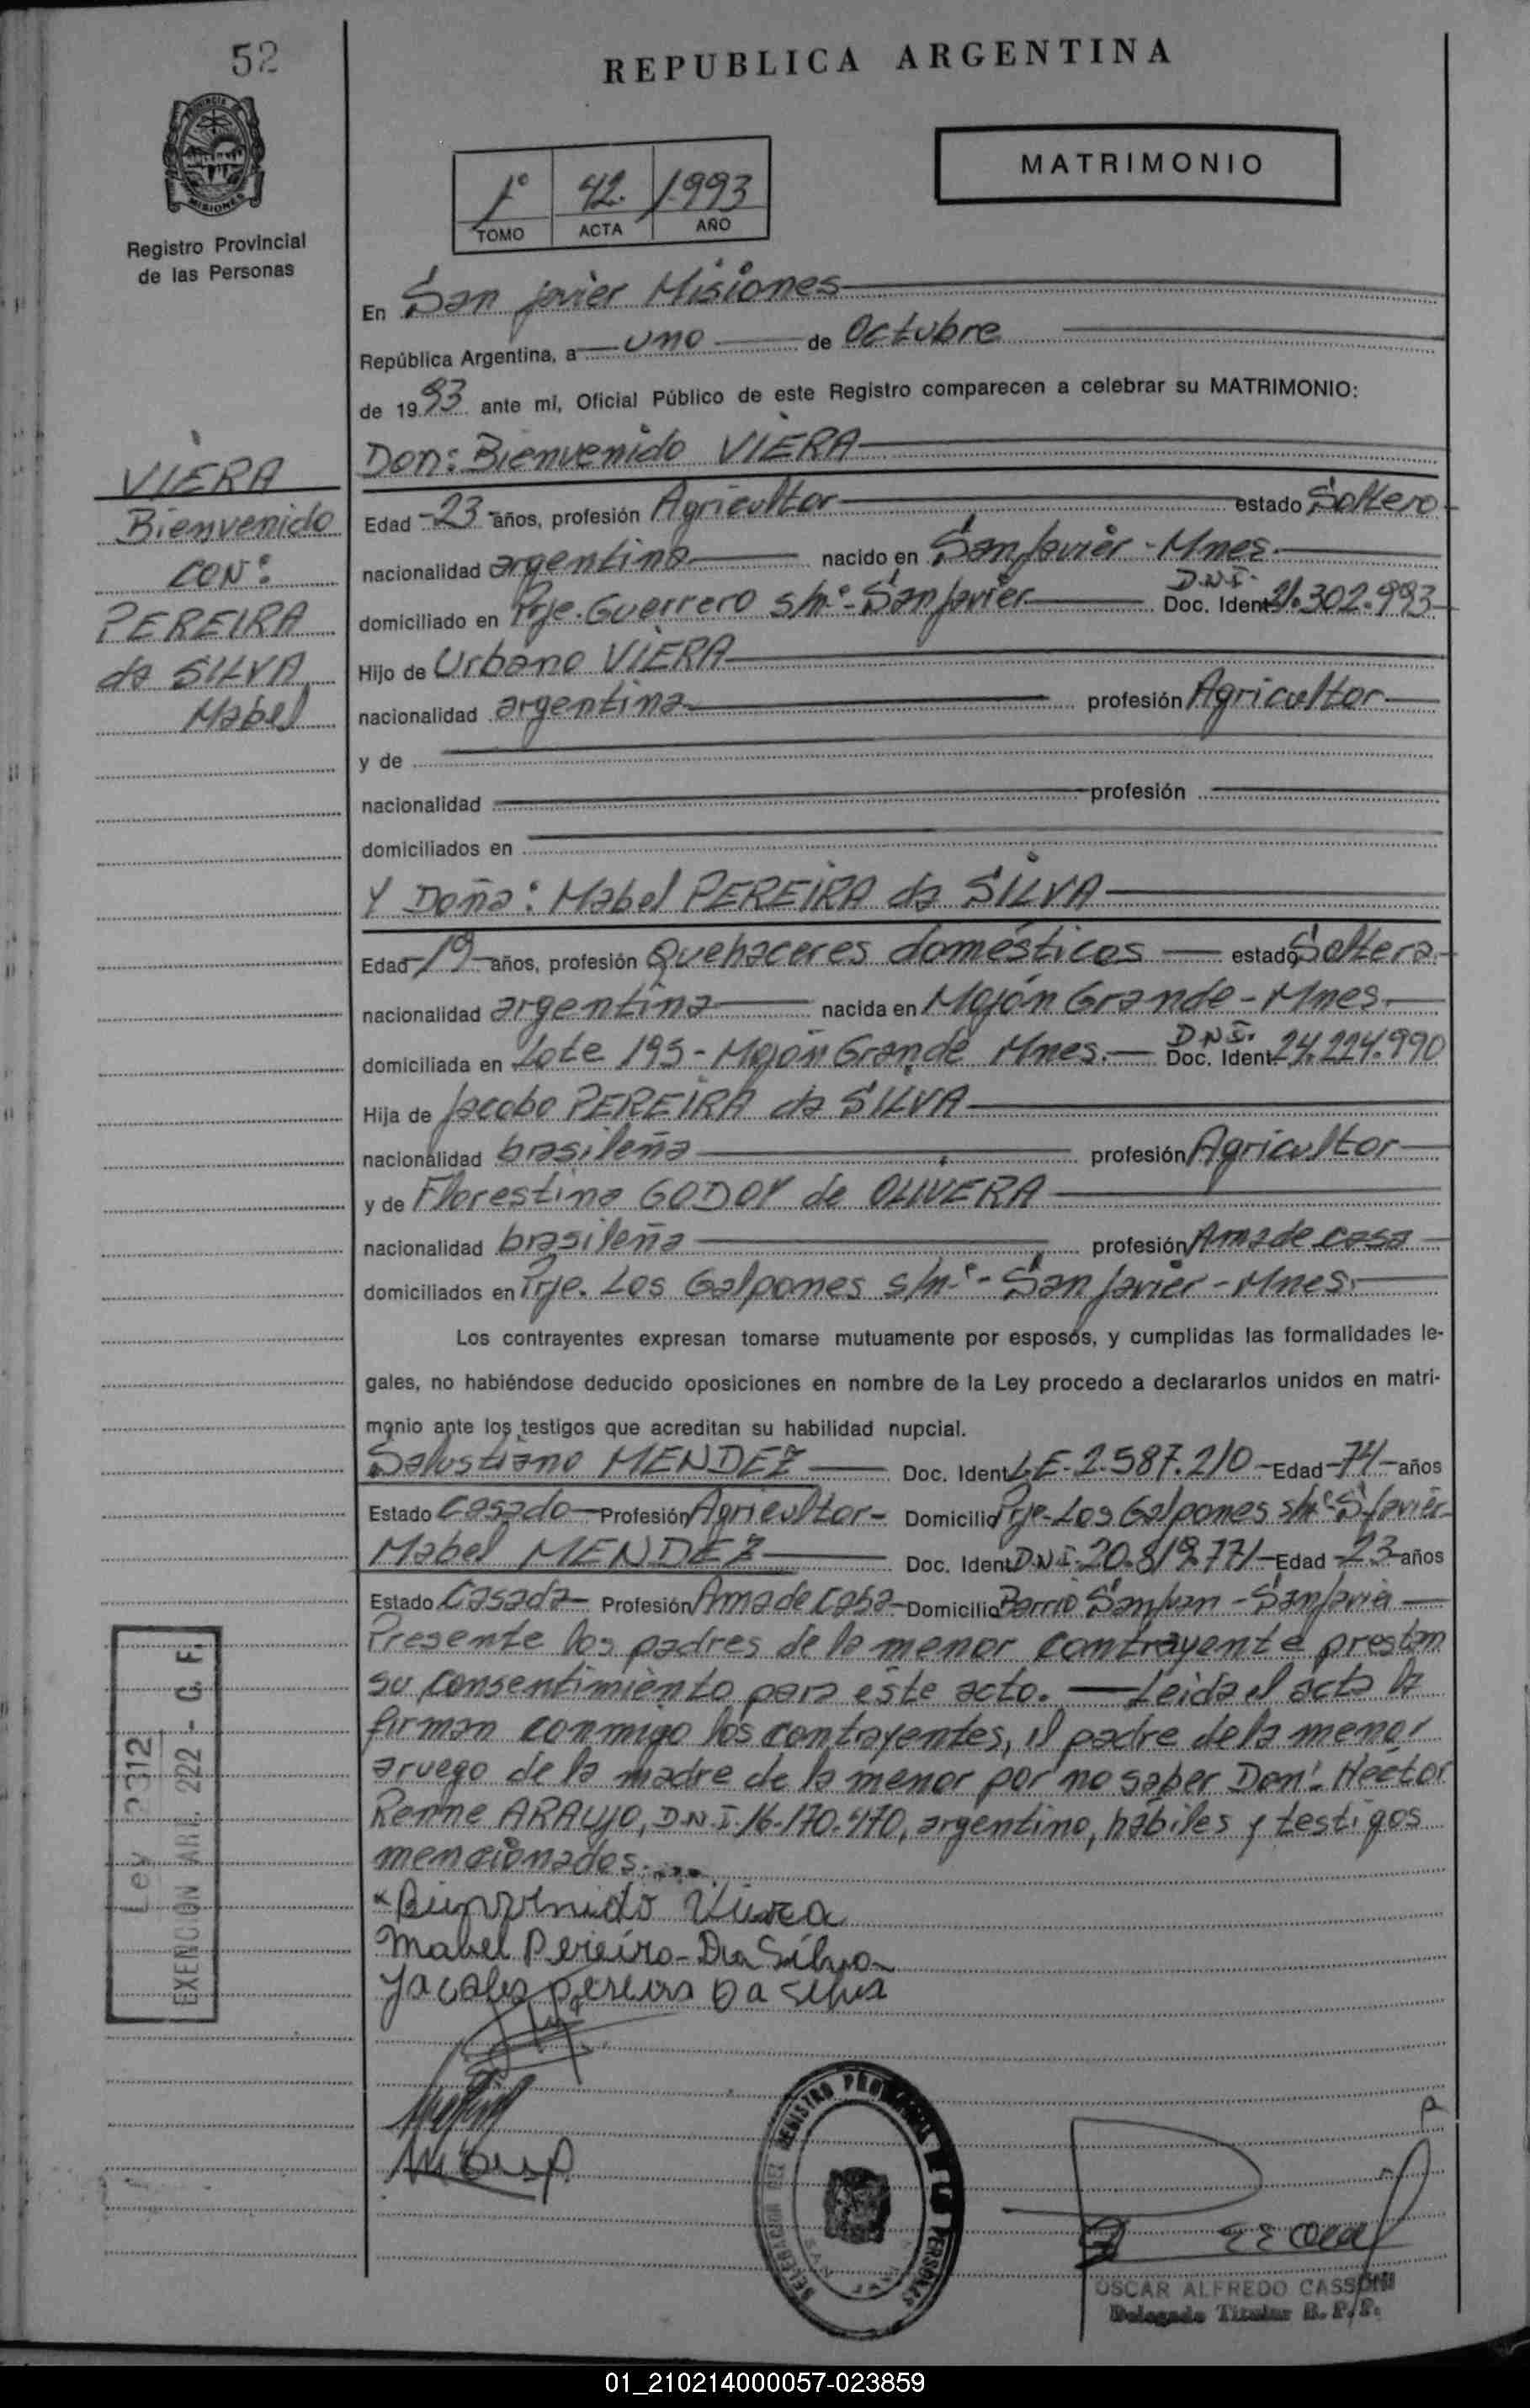 52
REPUBLICA ARGENTINA
PROVINCIA DE MISIONES
Registro Provincial
de las Personas
MATRIMONIO
1° 42. 1.993
TOMO ACTA AÑO
En San Javier Misiones
República Argentina, a uno de Octubre
de 1993 ante mi, Oficial Público de este Registro comparecen a celebrar su MATRIMONIO:
VIERA
Bienvenido
CON:
PEREIRA
da SILVA
Mabel
Don: Bienvenido VIERA
Edad -23- años, profesión Agricultor estado Soltero
nacionalidad argentina nacido en San Javier - Mnes.
domiciliado en Prje. Guerrero s/n°- San Javier D.N.I. Doc. Ident. 21.302.993
Hijo de Urbano VIERA
nacionalidad argentina profesión Agricultor
y de
nacionalidad profesión
domiciliados en
Y Doña: Mabel PEREIRA da SILVA
Edad -19- años, profesión Quehaceres domésticos estado Soltera
nacionalidad argentina nacida en Mojón Grande - Mnes.
domiciliada en Lote 195 - Mojón Grande Mnes. D.N.I. Doc. Ident. 24.224.990
Hija de Jacobo PEREIRA da SILVA
nacionalidad brasileña profesión Agricultor
y de Florestina GODOY de OLIVERA
nacionalidad brasileña profesión Ama de casa
domiciliados en Prje. Los Galpones s/n°- San Javier - Mnes.
Los contrayentes expresan tomarse mutuamente por esposos, y cumplidas las formalidades le-
gales, no habiéndose deducido oposiciones en nombre de la Ley procedo a declararlos unidos en matri-
monio ante los testigos que acreditan su habilidad nupcial.
Salustiano MENDEZ Doc. Ident. L.E. 2.587.210 - Edad -74- años
Estado Casado Profesión Agricultor - Domicilio Prje. Los Galpones s/n° S. Javier
Mabel MENDEZ Doc. Ident. D.N.I. 20.819.771 - Edad -23- años
Estado Casada Profesión Ama de Casa Domicilio Barrio San Juan - San Javier
Presente los padres de la menor contrayente prestan
su consentimiento para éste acto. — Leida el acta la
firman conmigo los contrayentes, el padre de la menor
aruego de la madre de la menor por no saber Don: Héctor
Renne ARAUJO, D.N.I. 16.170.470, argentino, hábiles y testigos
mencionados.
Bienvenido Viera
Mabel Pereira - Da Silva
Jacobo Pereira Da Silva
Ley 2312
EXENCION ARE. 222 - C. F.
DELEGACION DEL REGISTRO PROVINCIAL DE LAS PERSONAS
SAN
OSCAR ALFREDO CASSONI
Delegado Titular R. P. P.
01_210214000057-023859